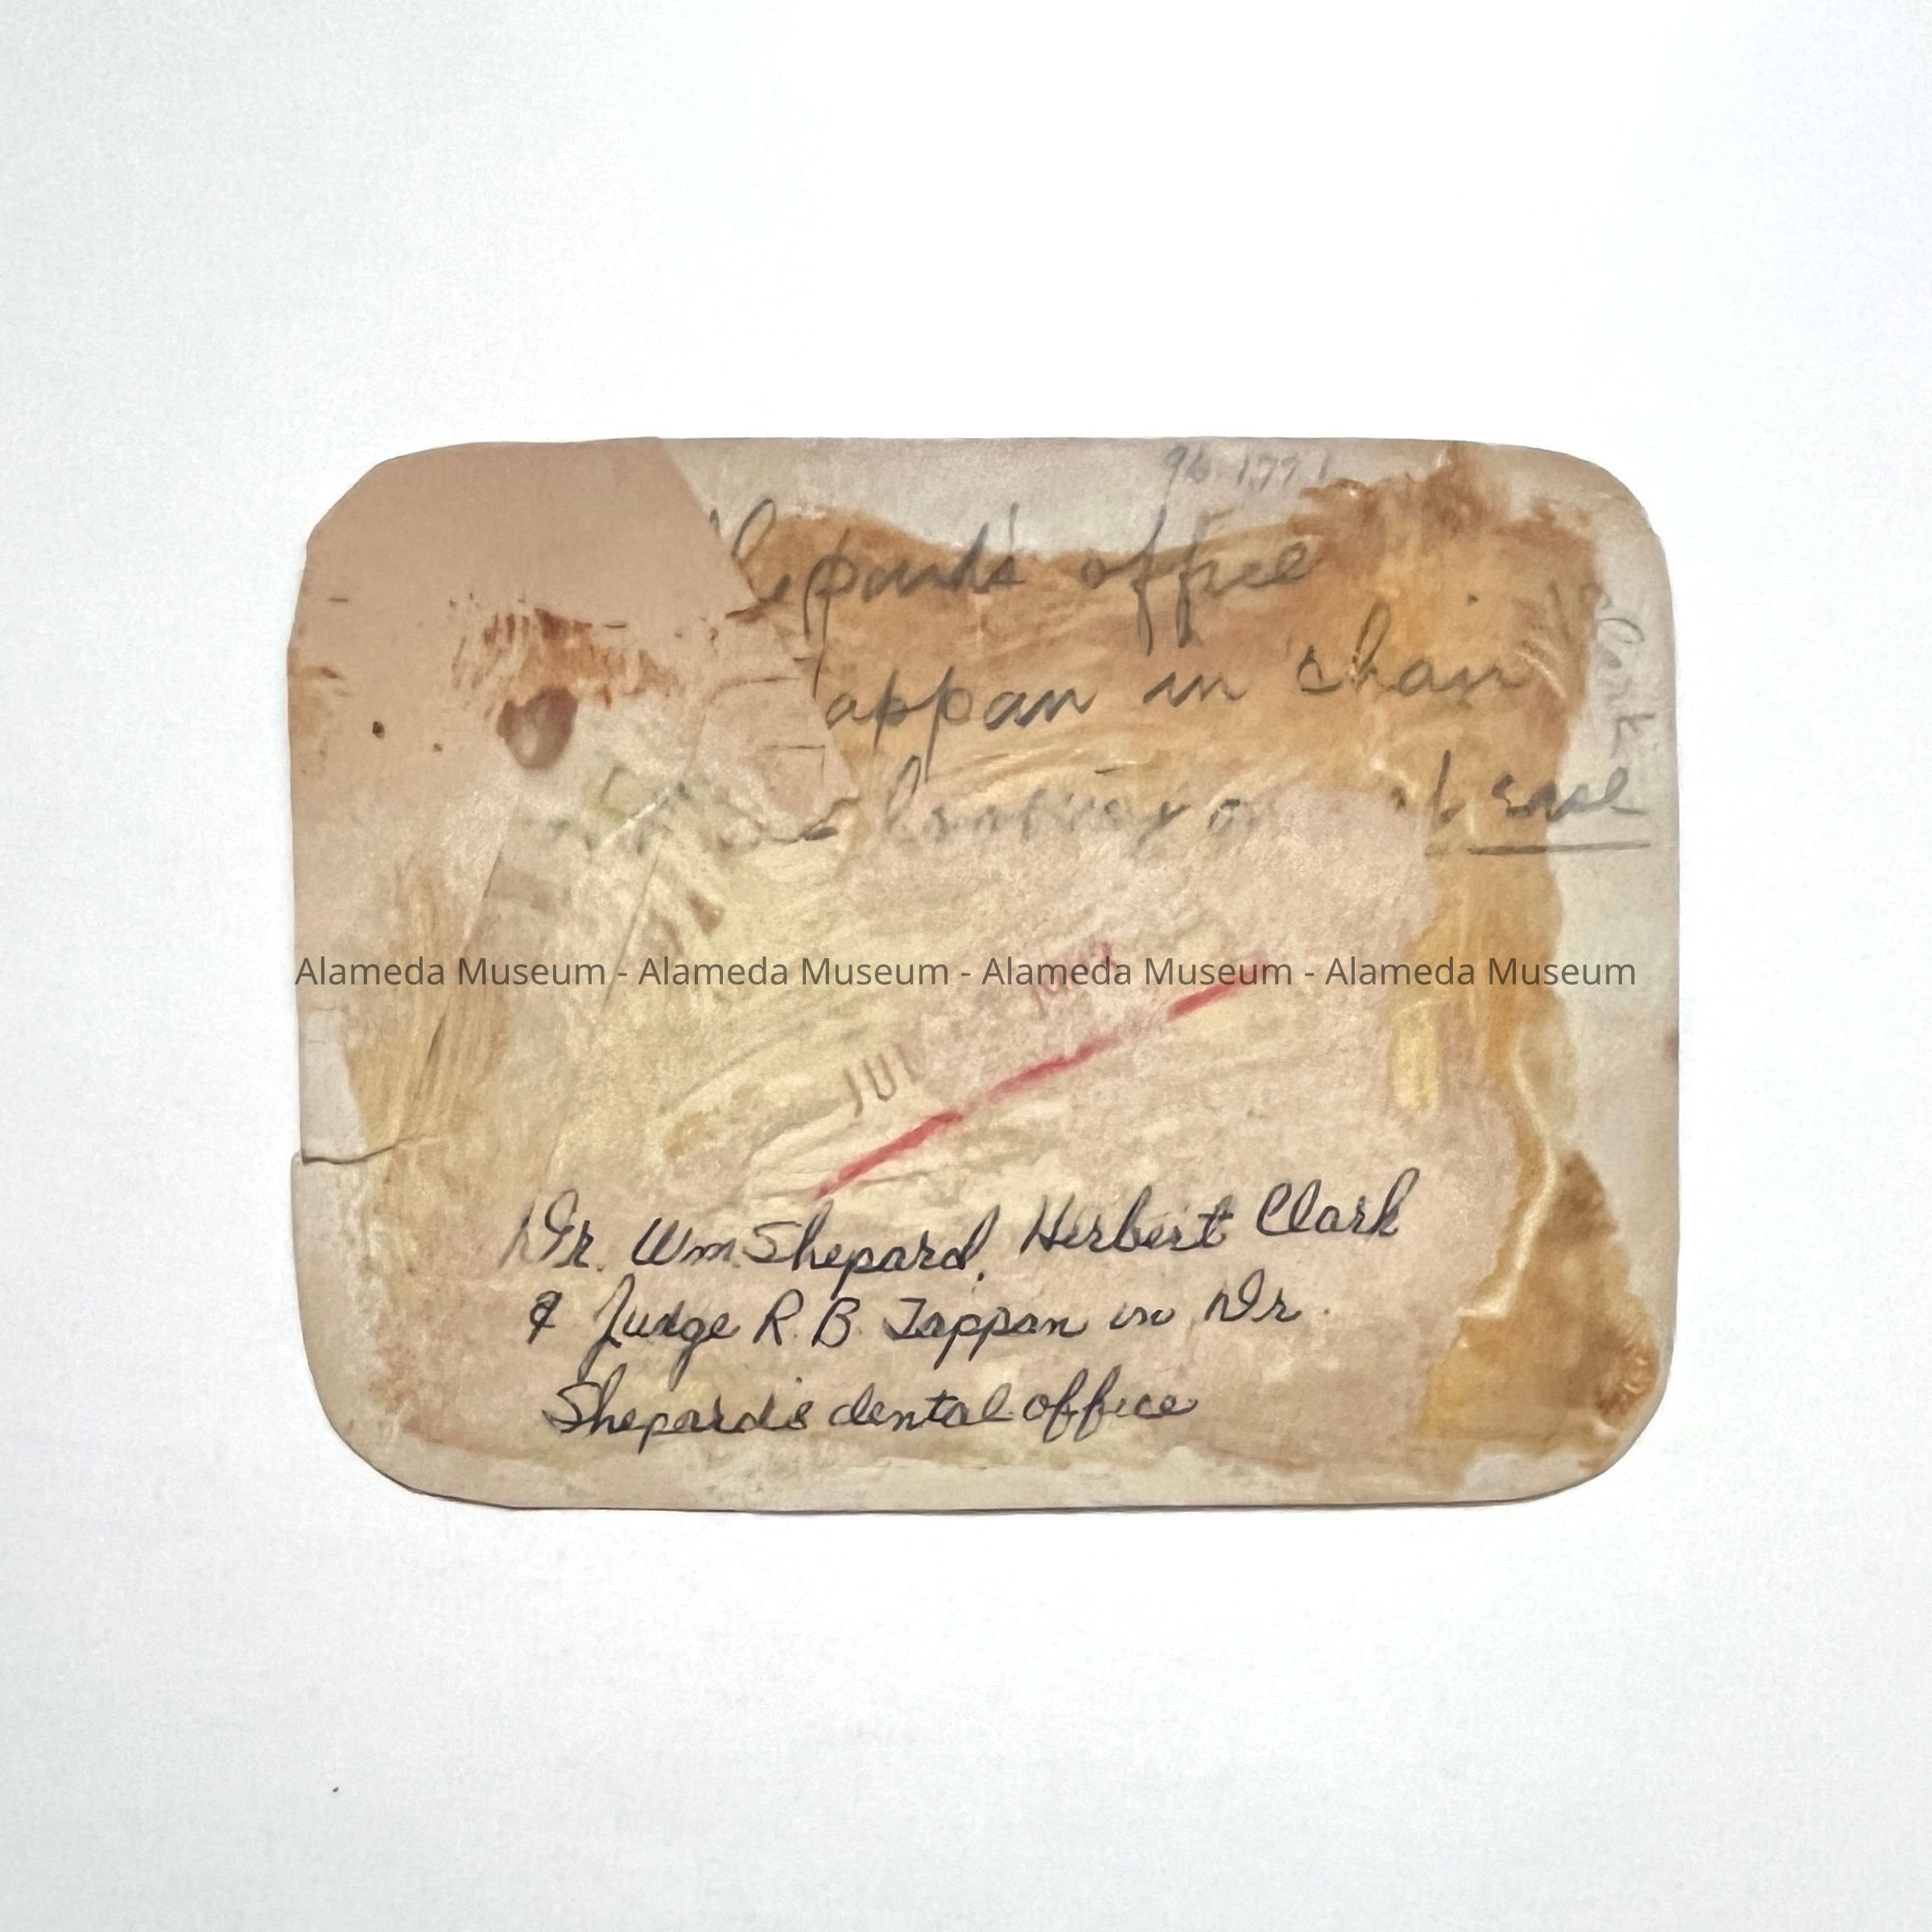 96.1771
hepard's office
appan in chair
looking o
Clark
Alameda Museum - Alameda Museum - Alameda Museum - Alameda Museum
JUL
Dr. Wm. Shepard, Herbert Clark
& Judge R. B. Tappan in Dr.
Shepard's dental office